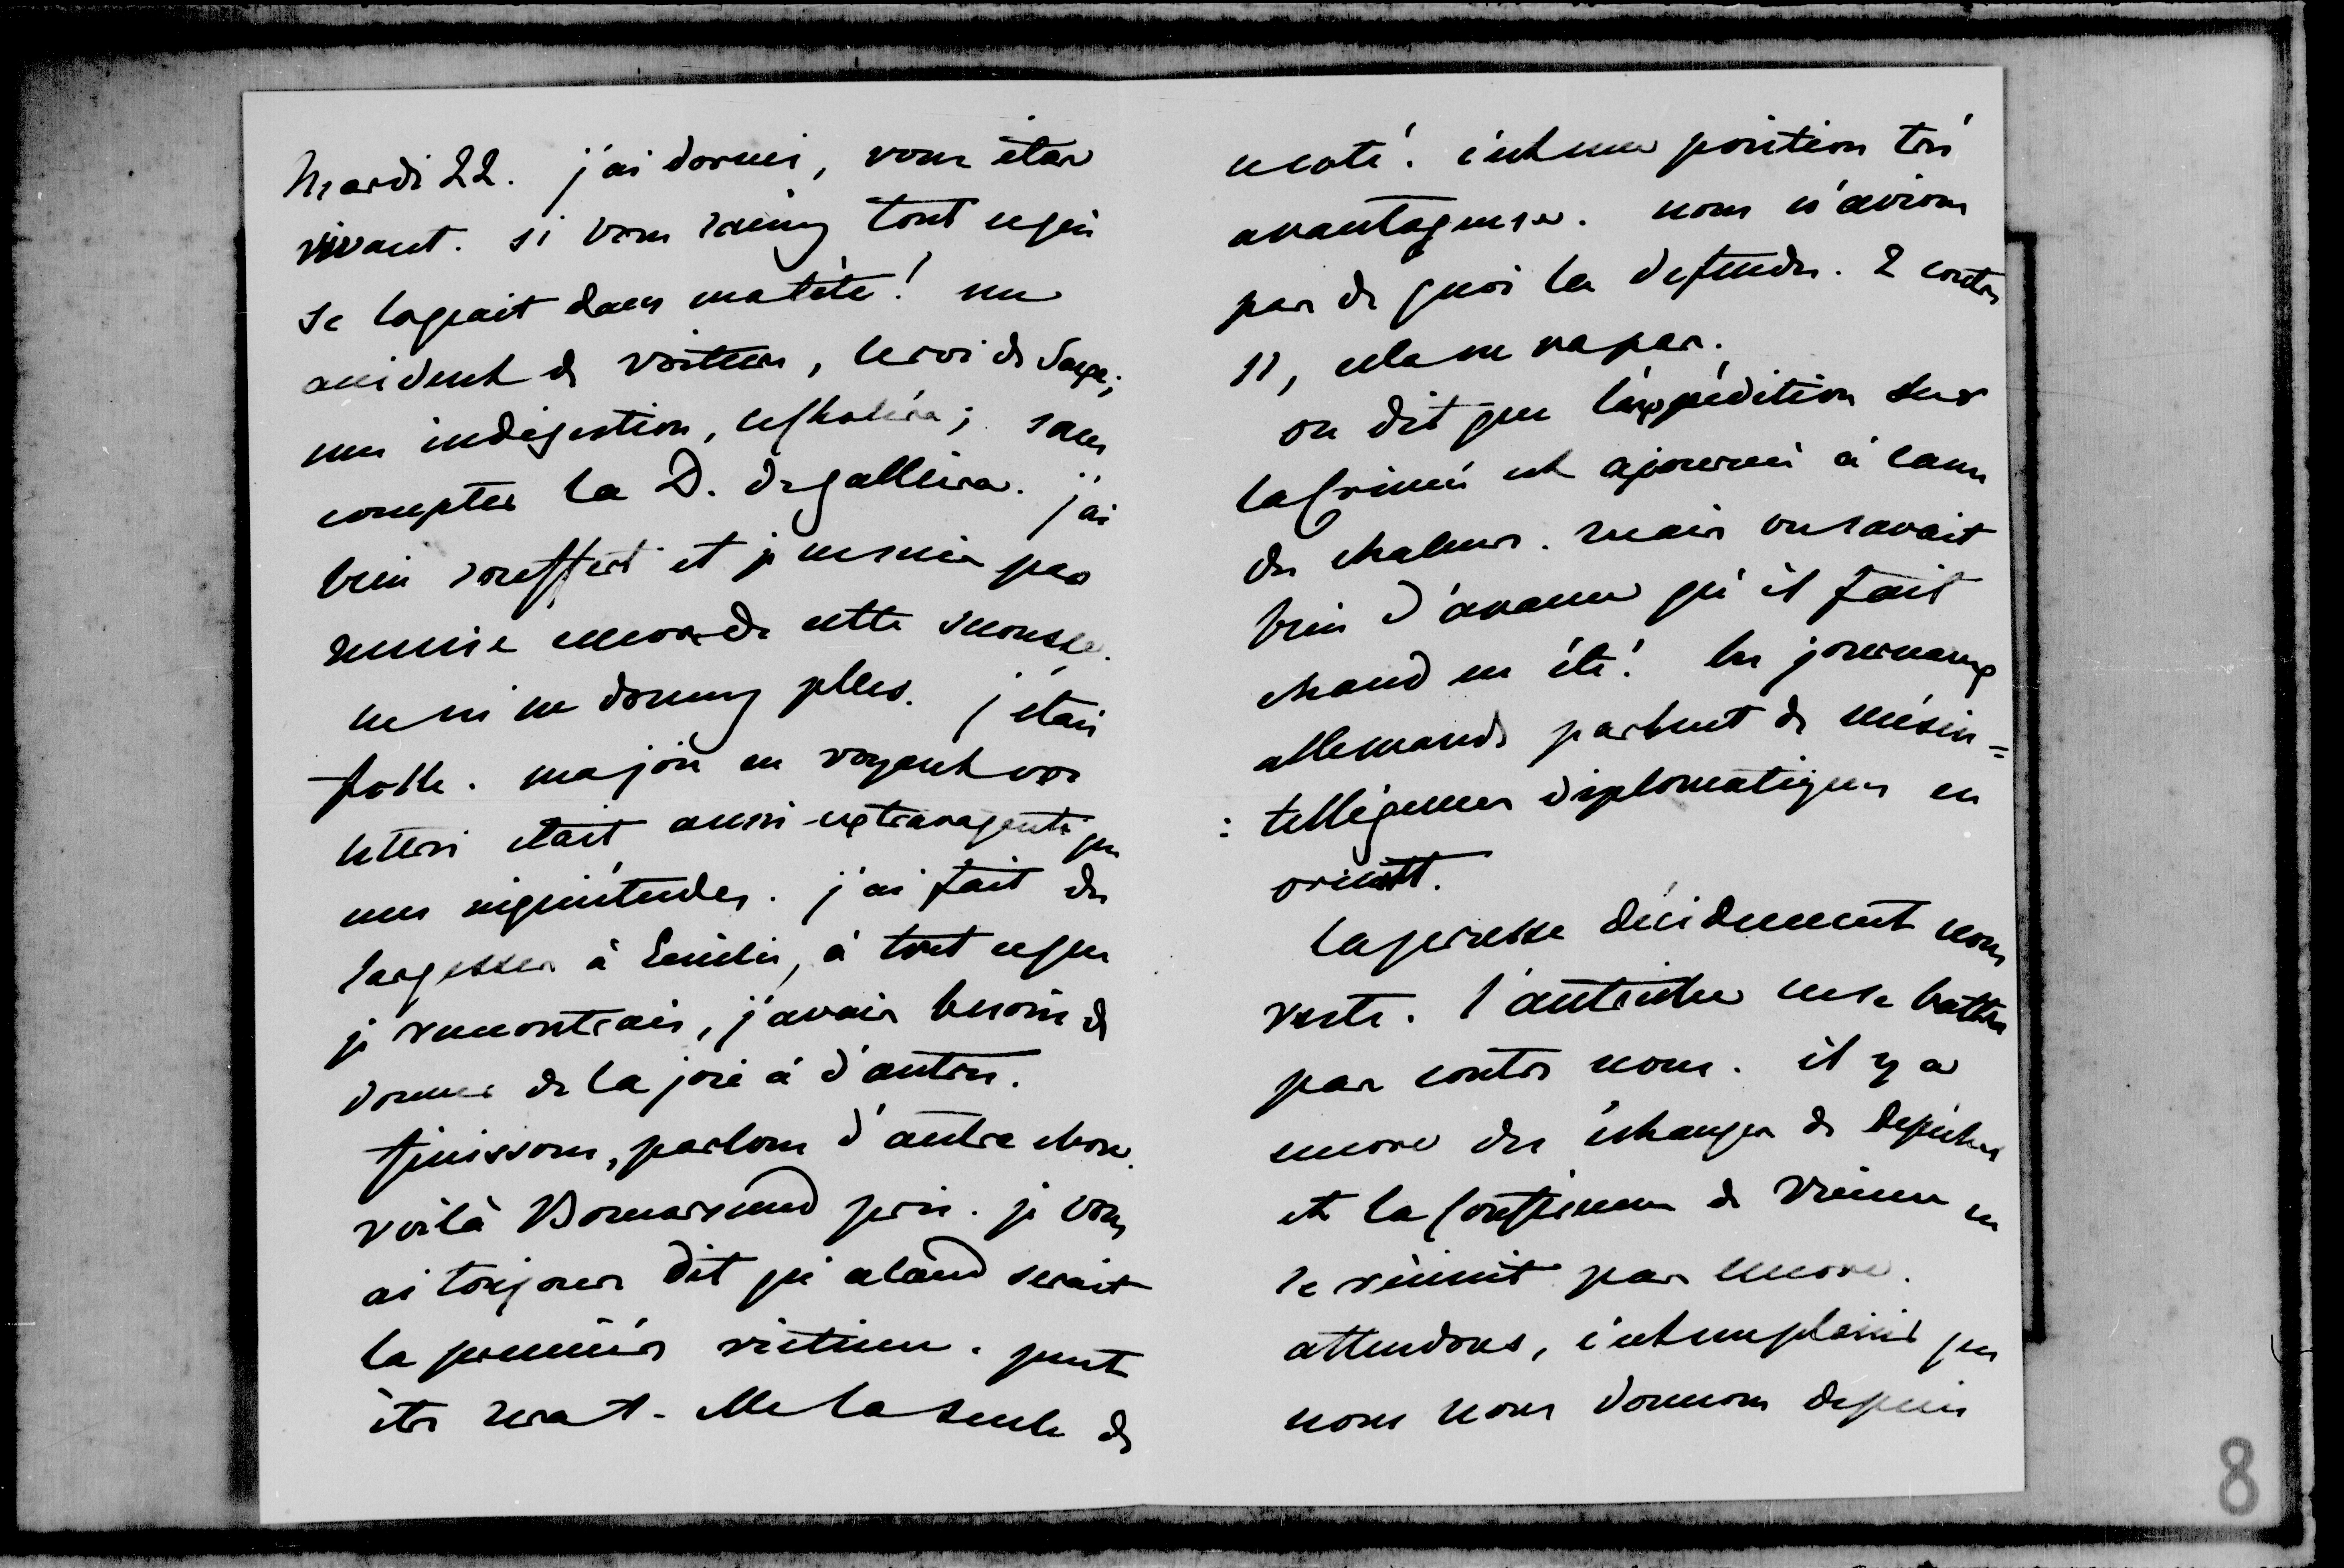 Mardi 22. j'ai dormi, vous êtes
vivant. si vous saviez tout ce qui
se logeait dans ma tête ! un
accident de voiture, le roi de Saxe ;
une indigestion, le choléra ; sans
compter la D. de galliera. j'ai
bien souffert et je ne suis pas
remise encore de cette secousse.
ne ni me donnez plus. j'étais
folle. ma joie en voyant vos
lettres était aussi extravagante que
mes inquiétudes. j'ai fait des
largesses à Emilie, à tout ce que
je rencontrais, j'avais besoin de
donner de la joie à d'autres.
finissons, parlons d'autre chose.
voilà Bomarsund pris. je vous
ai toujours dit qu'aland serait
la première victime. peut
être sera t-elle la seule de
ce coté. c'est une position très
avantageuse. nous n'avions
pas de quoi la defendre. 2 contre
11, cela ne va pas.
on dit que l'expédition sur
la Crimée est ajournée à cause
des chaleurs. mais on savait
bien d'avance qu'il fait
chaud en été ! les journaux
allemands parlent de mésin=
:telligences diplomatiques en
orient.
la prusse décidement nous
reste. l'autriche ne se battra
pas contre nous. il y a
encore des échanges de depêches
et la Conférence de Vienne ne
se réunit pas encore.
attendons, c'est un plaisir que
nous nous donnons depuis
8